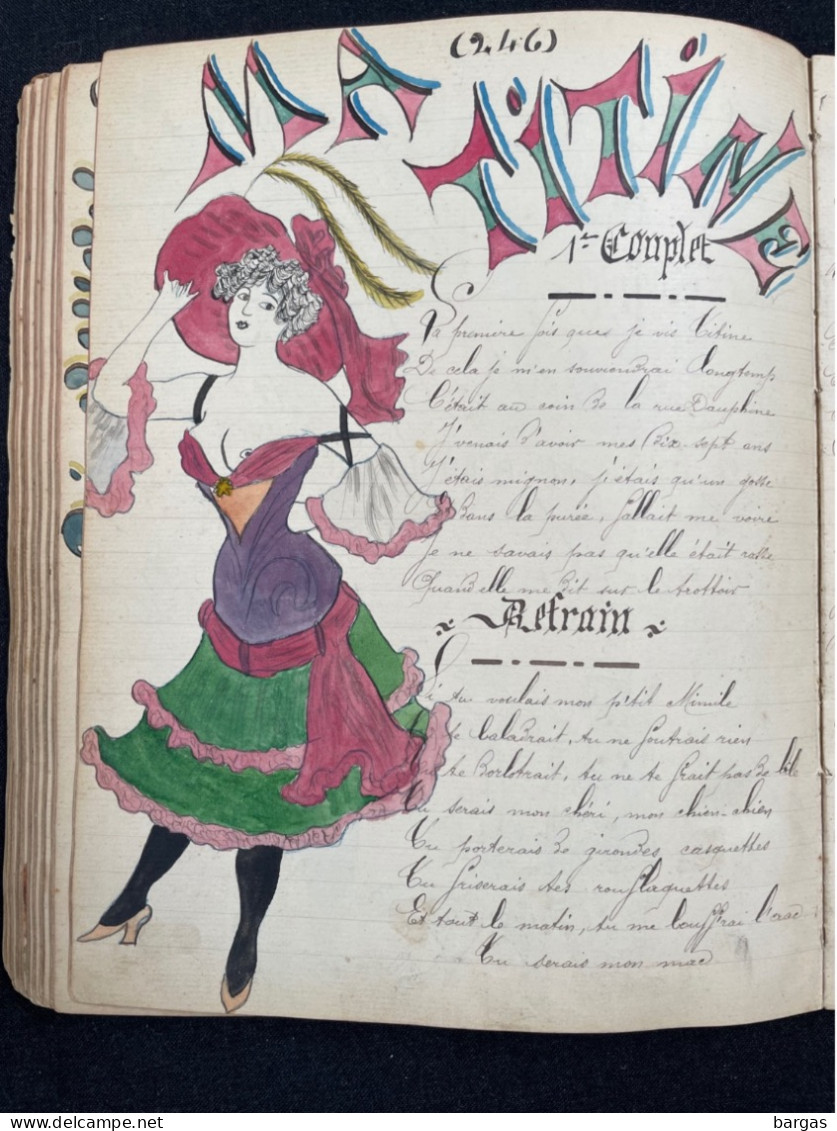 (246)
MA TITINE
1er Couplet
La première fois que je vis Titine
De cela je m'en souviendrai longtemp
C'était au coin de la rue Dauphine
J'venais d'avoir mes dix-sept ans
J'étais mignon, j'étais qu'un gosse
Dans la purée, fallait me voire
Je ne savais pas qu'elle était rosse
Quand elle me dit sur le trottoir
Refrain
Si tu voulais mon p'tit Mimile
te baladrait, tu ne foutrais rien
te dorlotrait, tu ne te frait pas de bile
Tu serais mon chéri, mon chien-chien
Tu porterais de girondes casquettes
Tu friserais tes rouflaquettes
Et tout le matin, tu me
Tu serais mon mac
delcampe.net
bargas